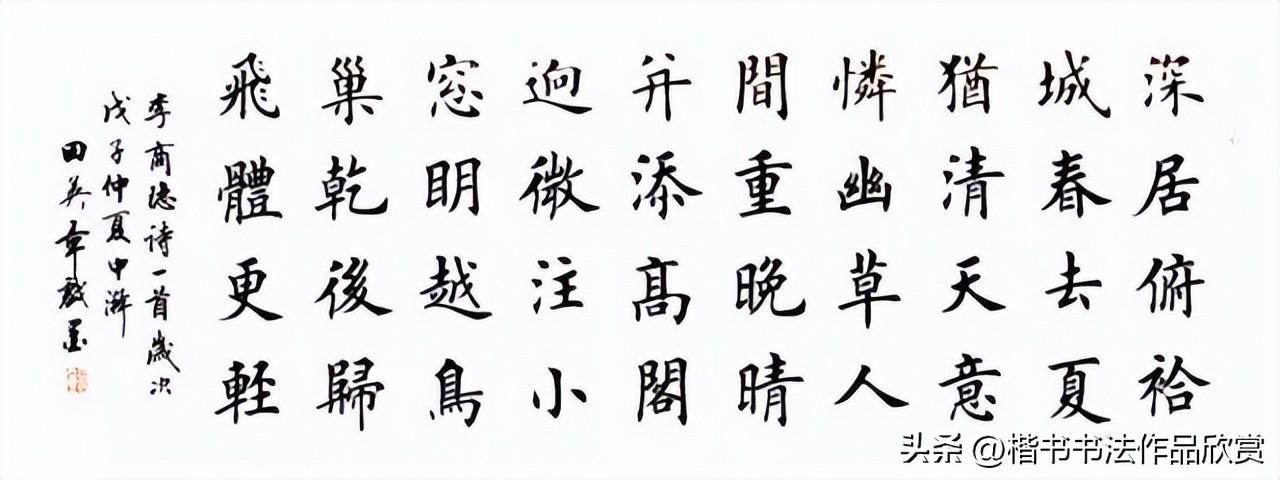 深居俯袷
城春去夏
猶清天意
憐幽草人
間重晚晴
并添髙閣
逈微注小
窓眀越鳥
巢乾後歸
飛體更輕
李商隱詩一首歲次
戊子仲夏中澣
田英章敬墨
头条 @楷书书法作品欣赏